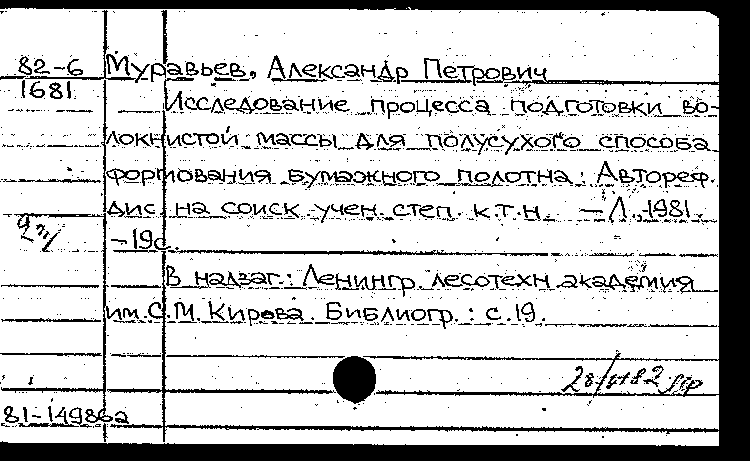 82-6 Муравьев, Александр Петрович
1681
Исследование процесса подготовки во-
локнистой массы для полусухого способа
формования бумажного полотна: Автореф.
дис. на соиск. учен. степ. к.т.н. – Л., 1981.
–19с.
В надзаг.: Ленингр. лесотехн. академия
им. С.М. Кирова. Библиогр.: с.19.
81-14986а